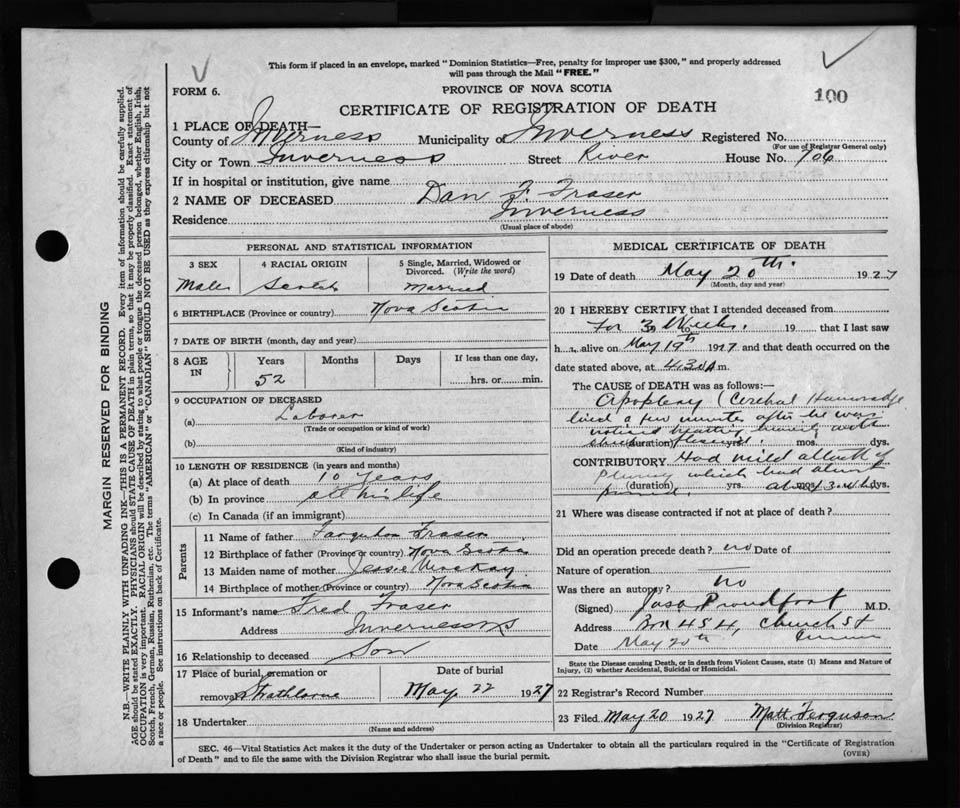 This form if placed in an envelope, marked "Dominion Statistics—Free, penalty for improper use $300," and properly addressed
will pass through the Mail "FREE."
FORM 6.
PROVINCE OF NOVA SCOTIA
100
CERTIFICATE OF REGISTRATION OF DEATH
1 PLACE OF DEATH—
County of Inverness Municipality of Inverness Registered No.
(For use of Registrar General only)
City or Town Inverness Street River House No. 706
If in hospital or institution, give name
2 NAME OF DECEASED Dan F. Fraser
Residence Inverness
(Usual place of abode)
PERSONAL AND STATISTICAL INFORMATION
3 SEX 4 RACIAL ORIGIN 5 Single, Married, Widowed or
Divorced. (Write the word)
Male Scotch Married
6 BIRTHPLACE (Province or country) Nova Scotia
7 DATE OF BIRTH (month, day and year)
8 AGE IN Years Months Days If less than one day,
52 hrs. or min.
9 OCCUPATION OF DECEASED
(a) Laborer
(Trade or occupation or kind of work)
(b)
(Kind of industry)
10 LENGTH OF RESIDENCE (in years and months)
(a) At place of death 10 years
(b) In province all his life
(c) In Canada (if an immigrant)
Parents
11 Name of father Farquhar Fraser
12 Birthplace of father (Province or country) Nova Scotia
13 Maiden name of mother Jessie
14 Birthplace of mother (Province or country) Nova Scotia
15 Informant's name Fred Fraser
Address Inverness
16 Relationship to deceased Son
17 Place of burial, cremation or Date of burial
removal Strathlorne May 22 1927
18 Undertaker
(Name and address)
MEDICAL CERTIFICATE OF DEATH
19 Date of death May 20th. 1927
(Month, day and year)
20 I HEREBY CERTIFY that I attended deceased from
for 3 Weeks. 19 that I last saw
h alive on May 19th 1927 and that death occurred on the
date stated above, at 4.30 A m.
The CAUSE of DEATH was as follows:—
Apoplexy (Cerebral Hemorrhage
lived a few minutes after he was
noticed
(duration) yrs. mos. dys.
CONTRIBUTORY Had mild attack of
which had
(duration) yrs. mos. dys.
about 3
21 Where was disease contracted if not at place of death?
Did an operation precede death? no Date of
Nature of operation
Was there an autopsy? no
(Signed) Proudfoot M.D.
Address Box 454, Church St
Date May 20th
State the Disease causing Death, or in death from Violent Causes, state (1) Means and Nature of
Injury, (2) whether Accidental, Suicidal or Homicidal.
22 Registrar's Record Number
23 Filed May 20 1927 Matt Ferguson
(Division Registrar)
SEC. 46—Vital Statistics Act makes it the duty of the Undertaker or person acting as Undertaker to obtain all the particulars required in the "Certificate of Registration
of Death" and to file the same with the Division Registrar who shall issue the burial permit.
(OVER)
MARGIN RESERVED FOR BINDING
N.B.—WRITE PLAINLY WITH UNFADING INK—THIS IS A PERMANENT RECORD. Every item of information should be carefully supplied.
AGE should be stated EXACTLY. PHYSICIANS should STATE CAUSE OF DEATH in plain terms, so that it may be properly classified. Exact statement of
OCCUPATION is very important. RACIAL ORIGIN will be described by stating to what people or tongue the deceased person belonged, whether English, Irish,
Scotch, French, German, Russian, Ruthenian, etc. The terms "AMERICAN" or "CANADIAN" SHOULD NOT BE USED as they express citizenship but not
a race or people. See instructions on back of Certificate.